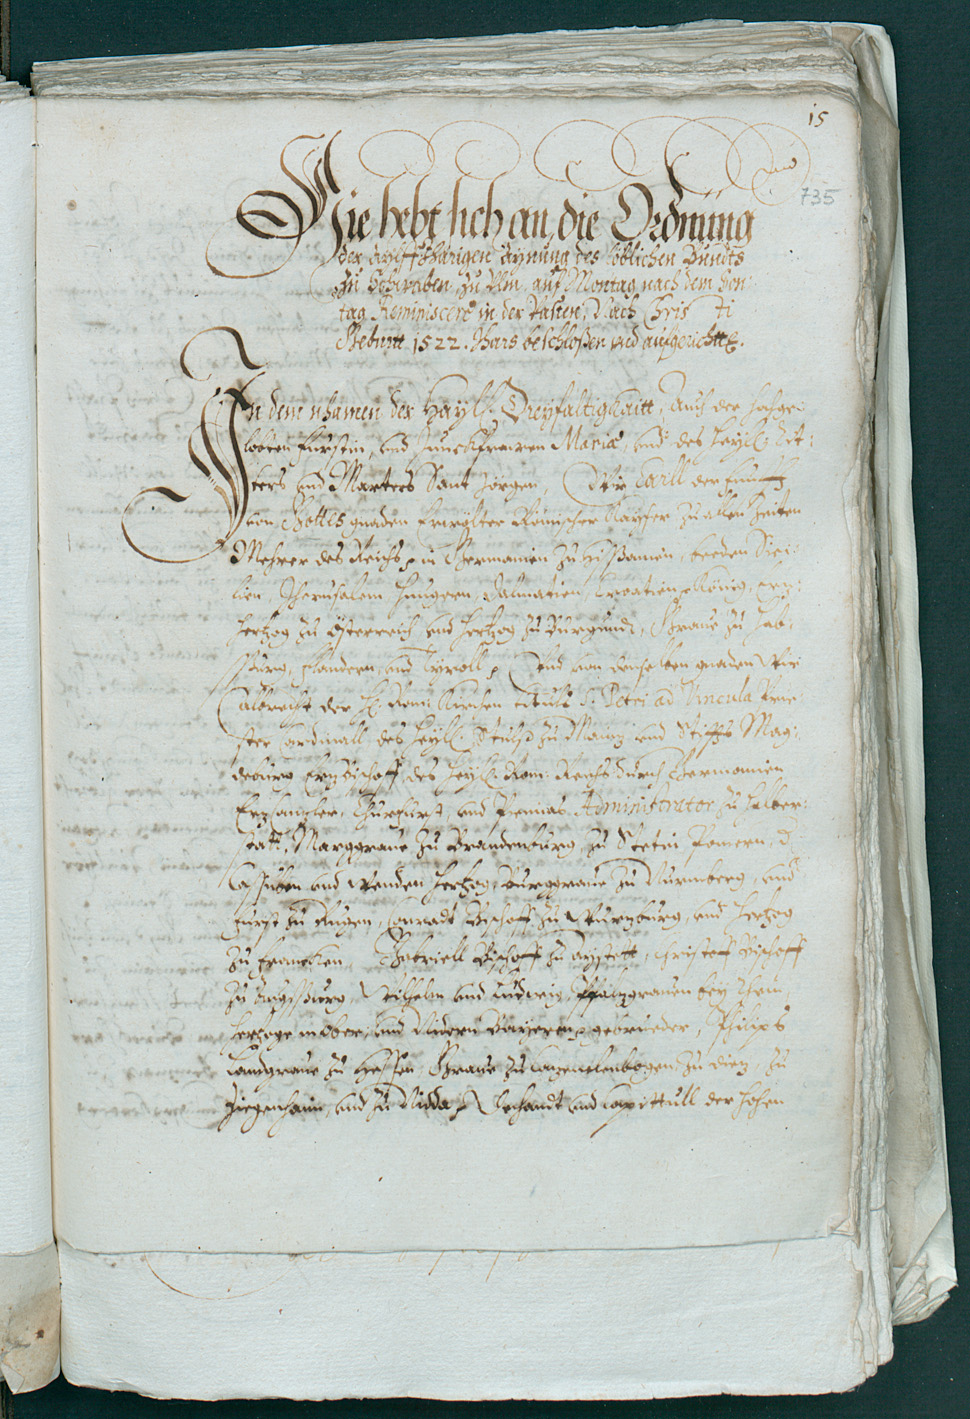 15
735
Hie hebt sich an, die Ordnung
der ayllffJhärigen aynung des löblichen Bundts
zu Schwaben, zu Ulm, auf Montag nach dem Son:
tag Reminiscere in der Vasten, Nach Chris ti
Geburtt 1522. Jhars beschloßen und aufgerichtt.
In dem nhamen der Hayl: Dreyfaltigkaitt, Auch der hochge:
lobten Fürstin, und Junckfrawen Mariæ, und des Heyl: Rit:
ters und Marters Sant Jörgen, Wir Carll der Fünfft
von Gottes gnaden Erwölter Römischer Kayser zu allen Zeiten
Mehrer des Reichs, in Germanien zu Hispanien, beeden Sici:
lien, Jherusalem Hungern, Dalmatien, Croatien, König, Erz:
Hertzog zu Österreich und Hertzog zu Burgundi, Grave zu Hab:
spurg, Flandern, und Tyroll, Und von denselben gnaden Wir
Albrecht der H: Rom: Kirchen tituli S: Petri ad Vincula Prie
ster Cardinall, des Heyl: Stuls zu Maintz und Stiffts Mag:
deburg Erzbischoff, des Heyl: Rom: Reichs durch Germanien
Erzcantzler, Churfürst, und Primas, Administrator zu Halber:
statt, Marggrave zu Brandenburg, zu Stettin Pomern, d
Cassuben und Wenden Hertzog, Burggrave zu Nurmberg, und
Fürst zu Rügen, Conradt Bischoff zu Würtzburg, und Hertzog
zu Francken, Gabriell Bischoff zu Aystett, Christoff Bischoff
zu Augspurg, Wilhelm und Ludwig, Pfaltzgraven bey Rhein,
Hertzoge in Ober, und Nidern Bayeren, gebrueder, Philips
Landgrave zu Hessen, Grave zu Catzenelenbogen, zu Dietz, zu
Ziegenhain, und zu Nidda, Dechandt und Capittull der Hohen